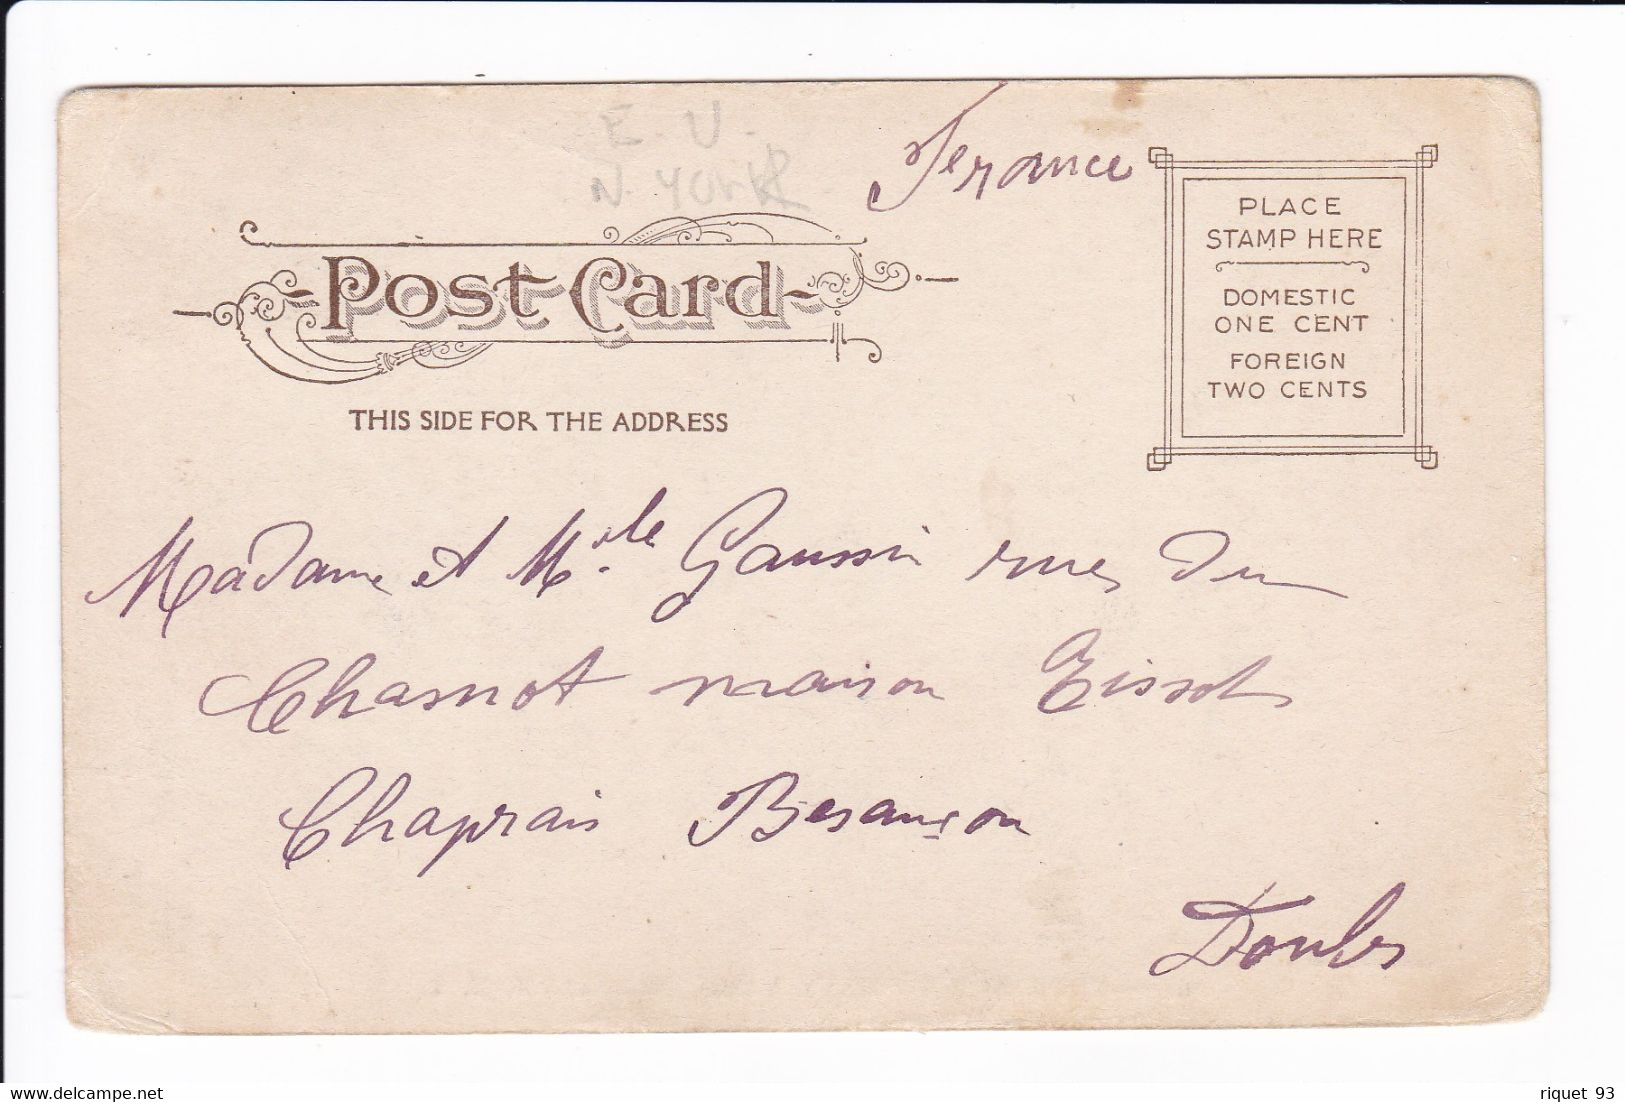 E. U.
N. YORK
France
PLACE
STAMP HERE
DOMESTIC
ONE CENT
FOREIGN
TWO CENTS
Post Card
THIS SIDE FOR THE ADDRESS
Madame et Mlle Gaussin rue du
Chasnot maison Tissot
Chaprais Besançon
Doubs
riquet 93